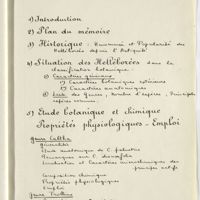 1) Introduction
2) Plan du mémoire
3) Historique - Renommée et Popularité des
Hellébores depuis l'Antiquité
4) Situation des Helléborées dans la
classification botanique.
a) Caractères généraux
1) Caractères botaniques extérieurs
2) Caractères anatomiques
b) des Genres, Nombre d'espèces, Principales
espèces connues.
5) Etude botanique et chimique
Propriétés physiologiques - Emploi
Genre Caltha
Généralités
Etude anatomique de C. palustris
Remarques sur C. dionæfolia
Localisation et Caractères microchimiques des
principes actifs
Composition chimique
Propriétés physiologiques
Emploi
Genre Trollius